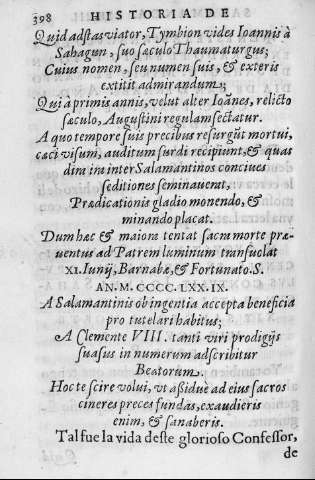 398 HISTORIA DE
Quid adstas viator, Tymbion vides Ioannis à
Sahagun, suo sæculo Thaumaturgus;
Cuius nomen, seu numen suis, & exteris
extitit admirandum;
Qui à primis annis, velut alter Ioãnes, relicto
sæculo, Augustini regulam sectatur.
A quo tempore suis precibus resurgũt mortui,
cæci visum, auditum surdi recipiunt, & quas
diræ inter Salamantinos concives
seditiones seminaverat,
Prædicationis gladio monendo, &
minando placat.
Dum hæc & maiora tentat sacra morte præ-
uentus ad Patrem luminum transuolat
XI. Iunij, Barnabæ, & Fortunato. S.
AN. M. CCCC. LXX. IX.
A Salamantinis ob ingentia accepta beneficia
pro tutelari habitus;
A Clemente VIII. tanti viri prodigijs
suasus in numerum adscribitur
Beatorum.
Hoc te scire volui, vt aßiduè ad eius sacros
cineres preces fundas, exaudieris
enim, & sanaberis.
Tal fue la vida deste glorioso Confessor,
de